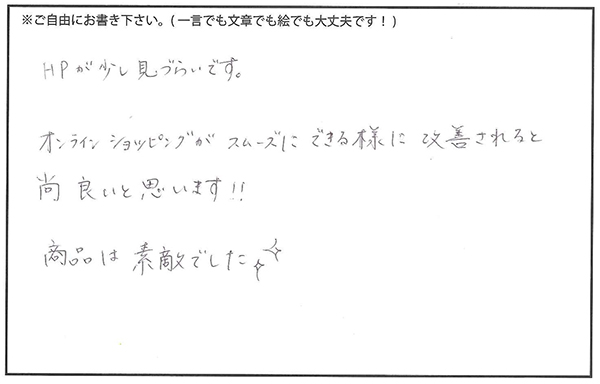 ※ご自由にお書き下さい。(一言でも文章でも絵でも大丈夫です！)
HPが少し見づらいです。
オンラインショッピングがスムーズにできる様に改善されると
尚良いと思います!!
商品は素敵でした